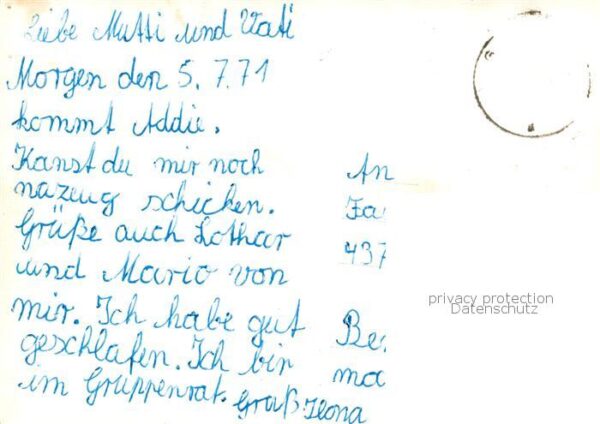 Liebe Mutti und Vati
Morgen den 5. 7. 71
kommt Addie.
Kanst du mir noch
nazeug schicken.
Grüße auch Lothar
und Mario von
mir. Ich habe gut
geschlafen. Ich bin
im Gruppenrat. Gruß Ilona
An
Fa
437
Be
ma
privacy protection
Datenschutz